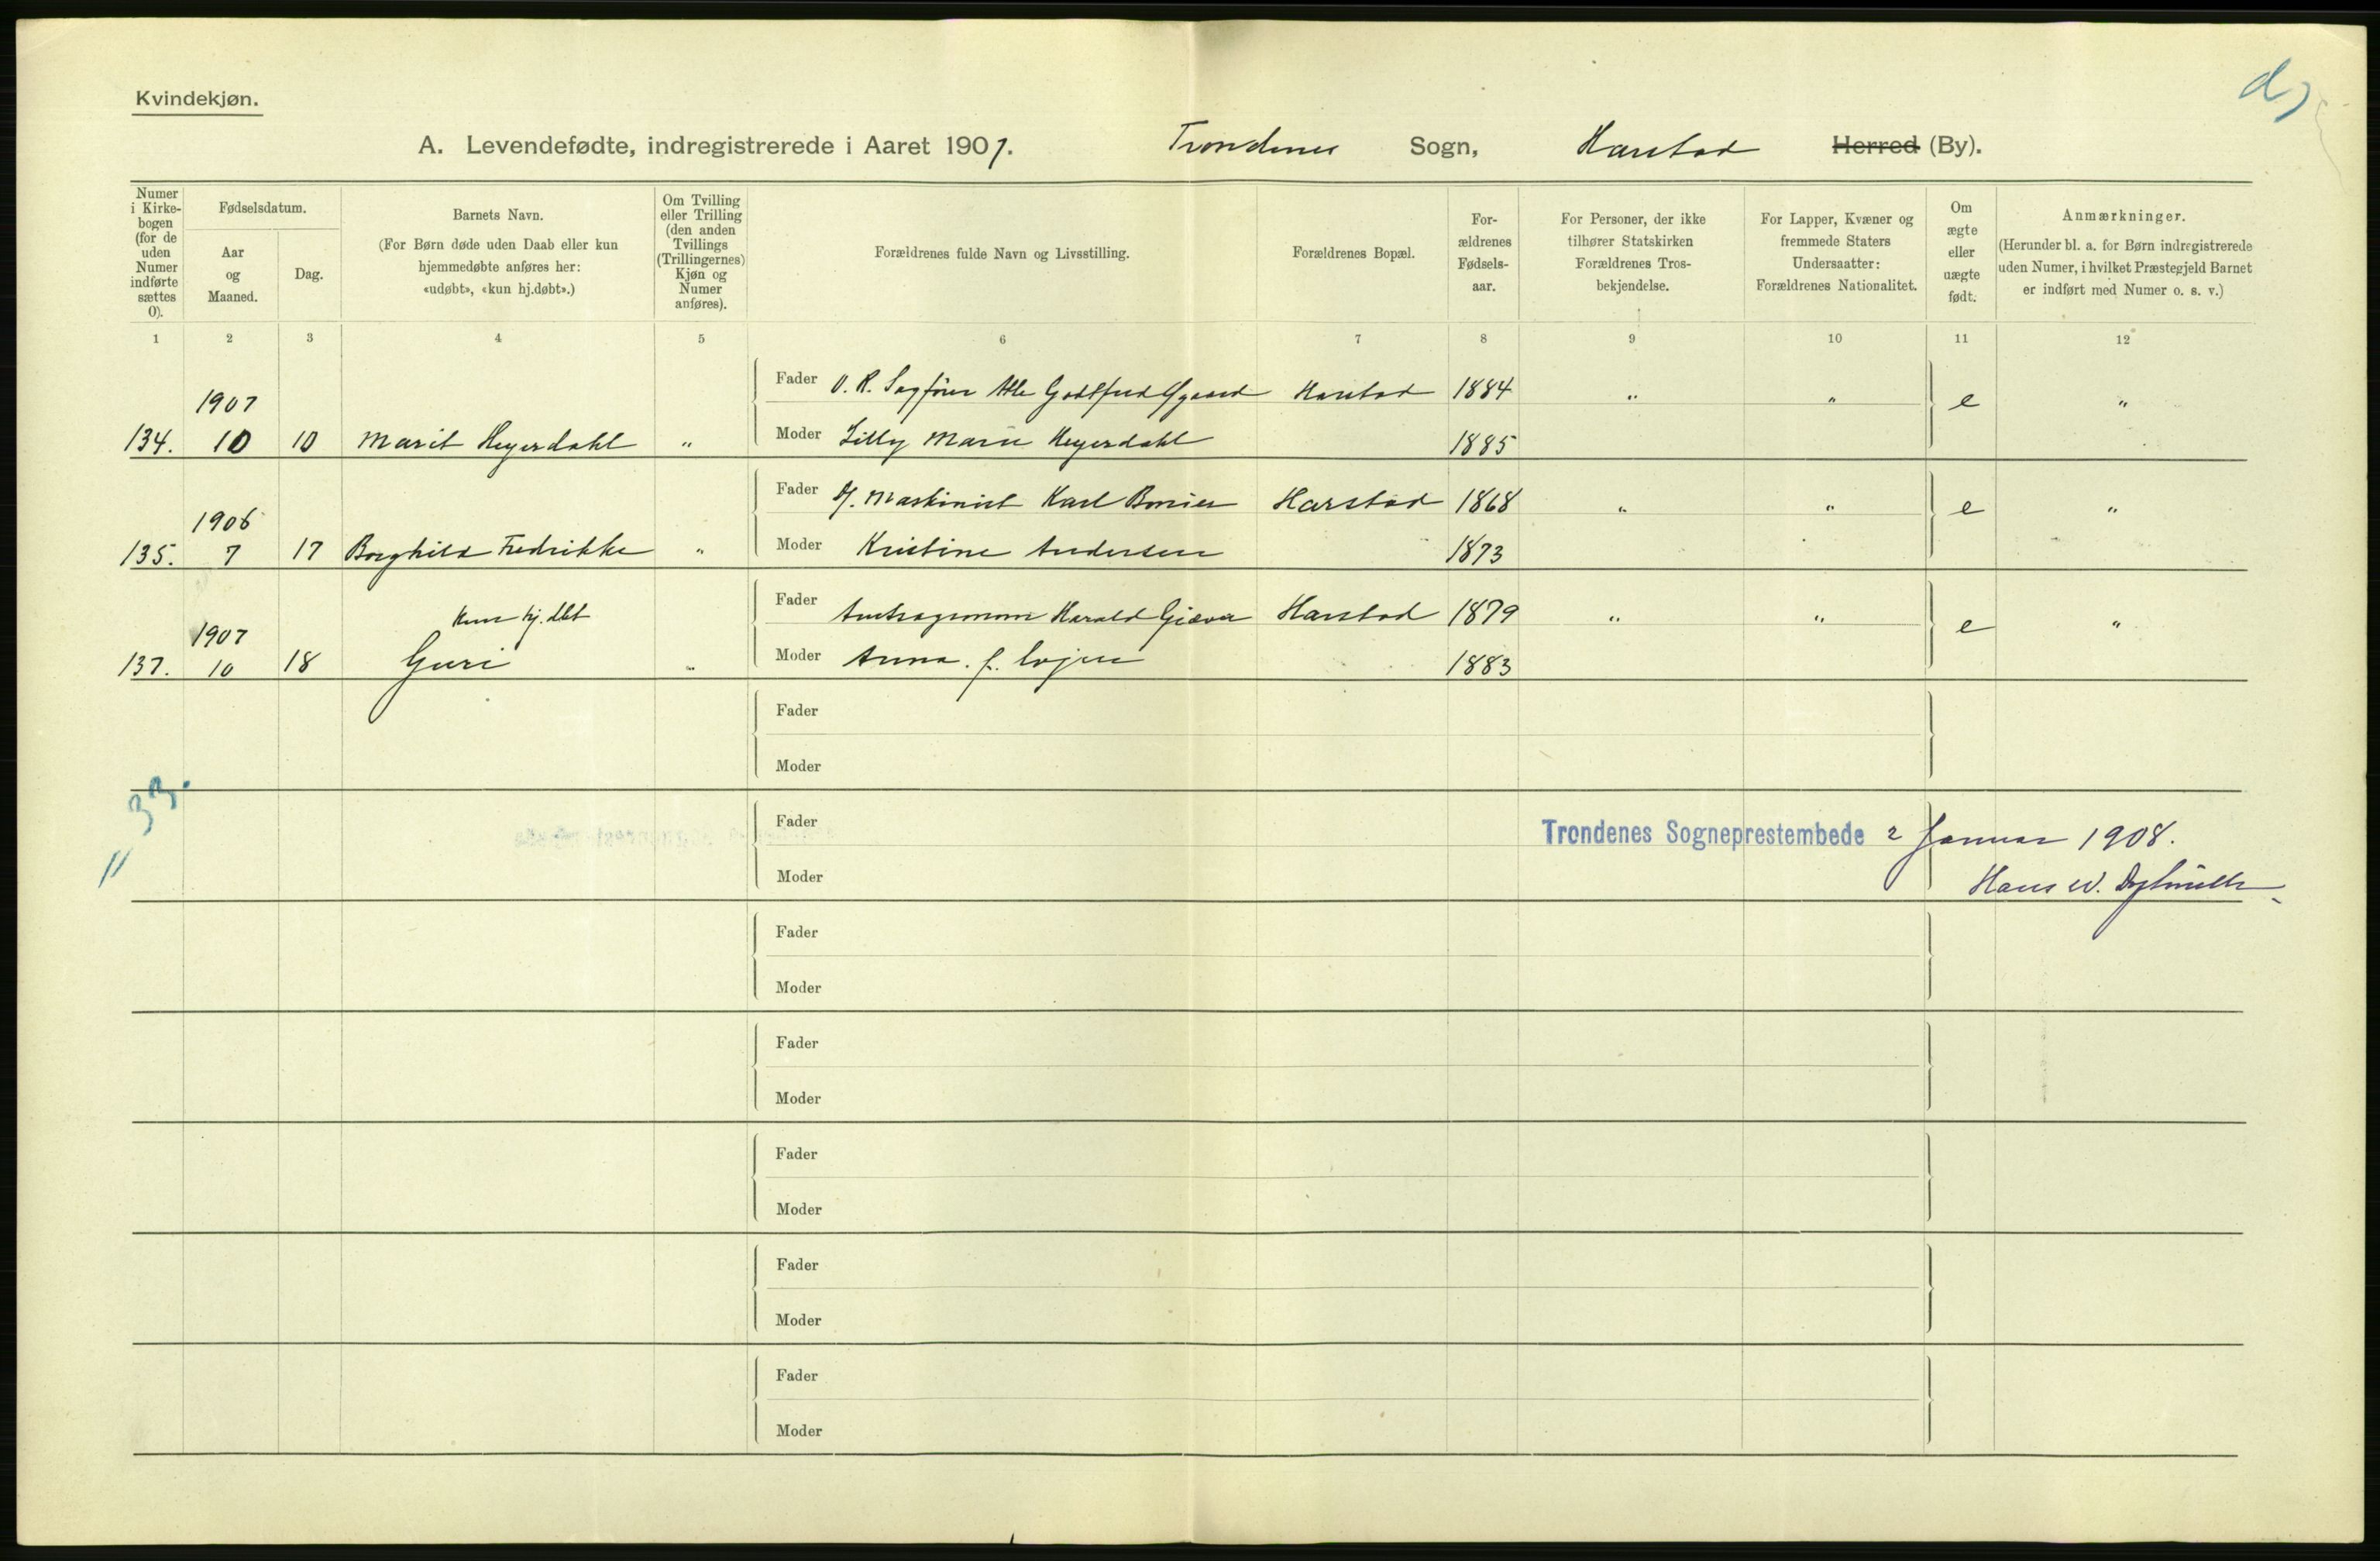 Kvindekjøn.
A. Levendefødte, indregistrerede i Aaret 1907. Trondenes Sogn, Harstad Herred (By).
Numer i Kirke- bogen (for de uden Numer indførte sættes 0).
Fødselsdatum.
Aar og Maaned.
Dag.
Barnets Navn.
(For Børn døde uden Daab eller kun hjemmedøbte anføres her: «udøbt», «kun hj.døbt».)
Om Tvilling eller Trilling (den anden Tvillings (Trillingernes) Kjøn og Numer anføres).
Forældrenes fulde Navn og Livsstilling.
Forældrenes Bopæl.
For- ældrenes Fødsels- aar.
For Personer, der ikke tilhører Statskirken Forældrenes Tros- bekjendelse.
For Lapper, Kvæner og fremmede Staters Undersaatter: Forældrenes Nationalitet.
Om ægte eller uægte født.
Anmærkninger.
(Herunder bl. a. for Børn indregistrerede uden Numer, i hvilket Præstegjeld Barnet er indført med Numer o. s. v.)
1 2 3 4 5 6 7 8 9 10 11 12
Fader O. R. Sagfører Atle Godtfred Harstad 1884 " " e "
1907
134. 10 10 Marit Heyerdahl " Moder Lilly Marie Heyerdahl 1885
Fader Maskinist Karl Harstad 1868 " " e "
1906
135. 7 17 Borghild Fredrikke " Moder Kristine Andersen 1873
Kun hj. dbt
Fader Harald Giæver Harstad 1879 " " e "
1907
137. 10 18 Guri " Moder Anna f. 1883
Fader
Moder
33.
Fader
Trondenes Sogneprestembede 2 Januar 1908.
11
Moder
Hans W.
Fader
Moder
Fader
Moder
Fader
Moder
Fader
Moder
Fader
Moder